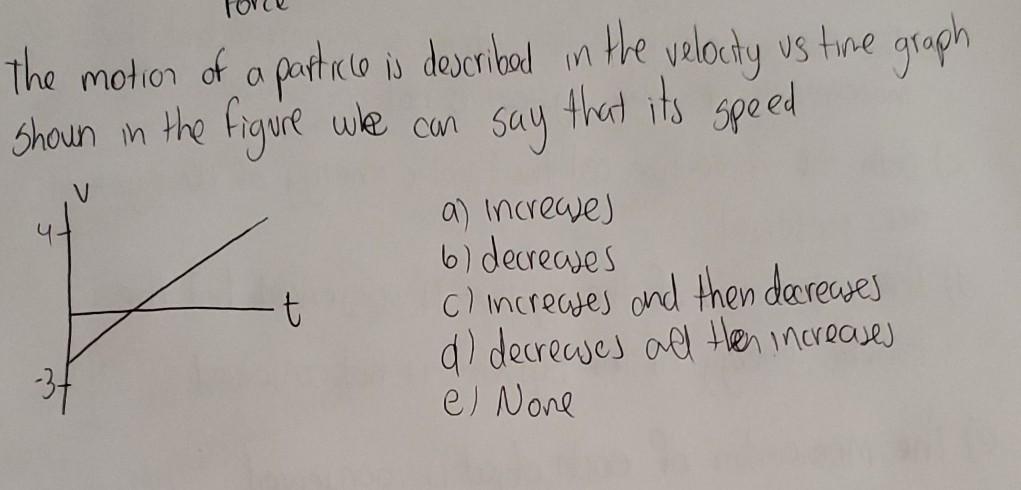 Force
The motion of a particle is described in the velocity vs time graph
shown in the figure we can say that its speed
V
4
t
-3
a) increases
b) decreases
c) increases and then decreases
d) decreases and then increases
e) None